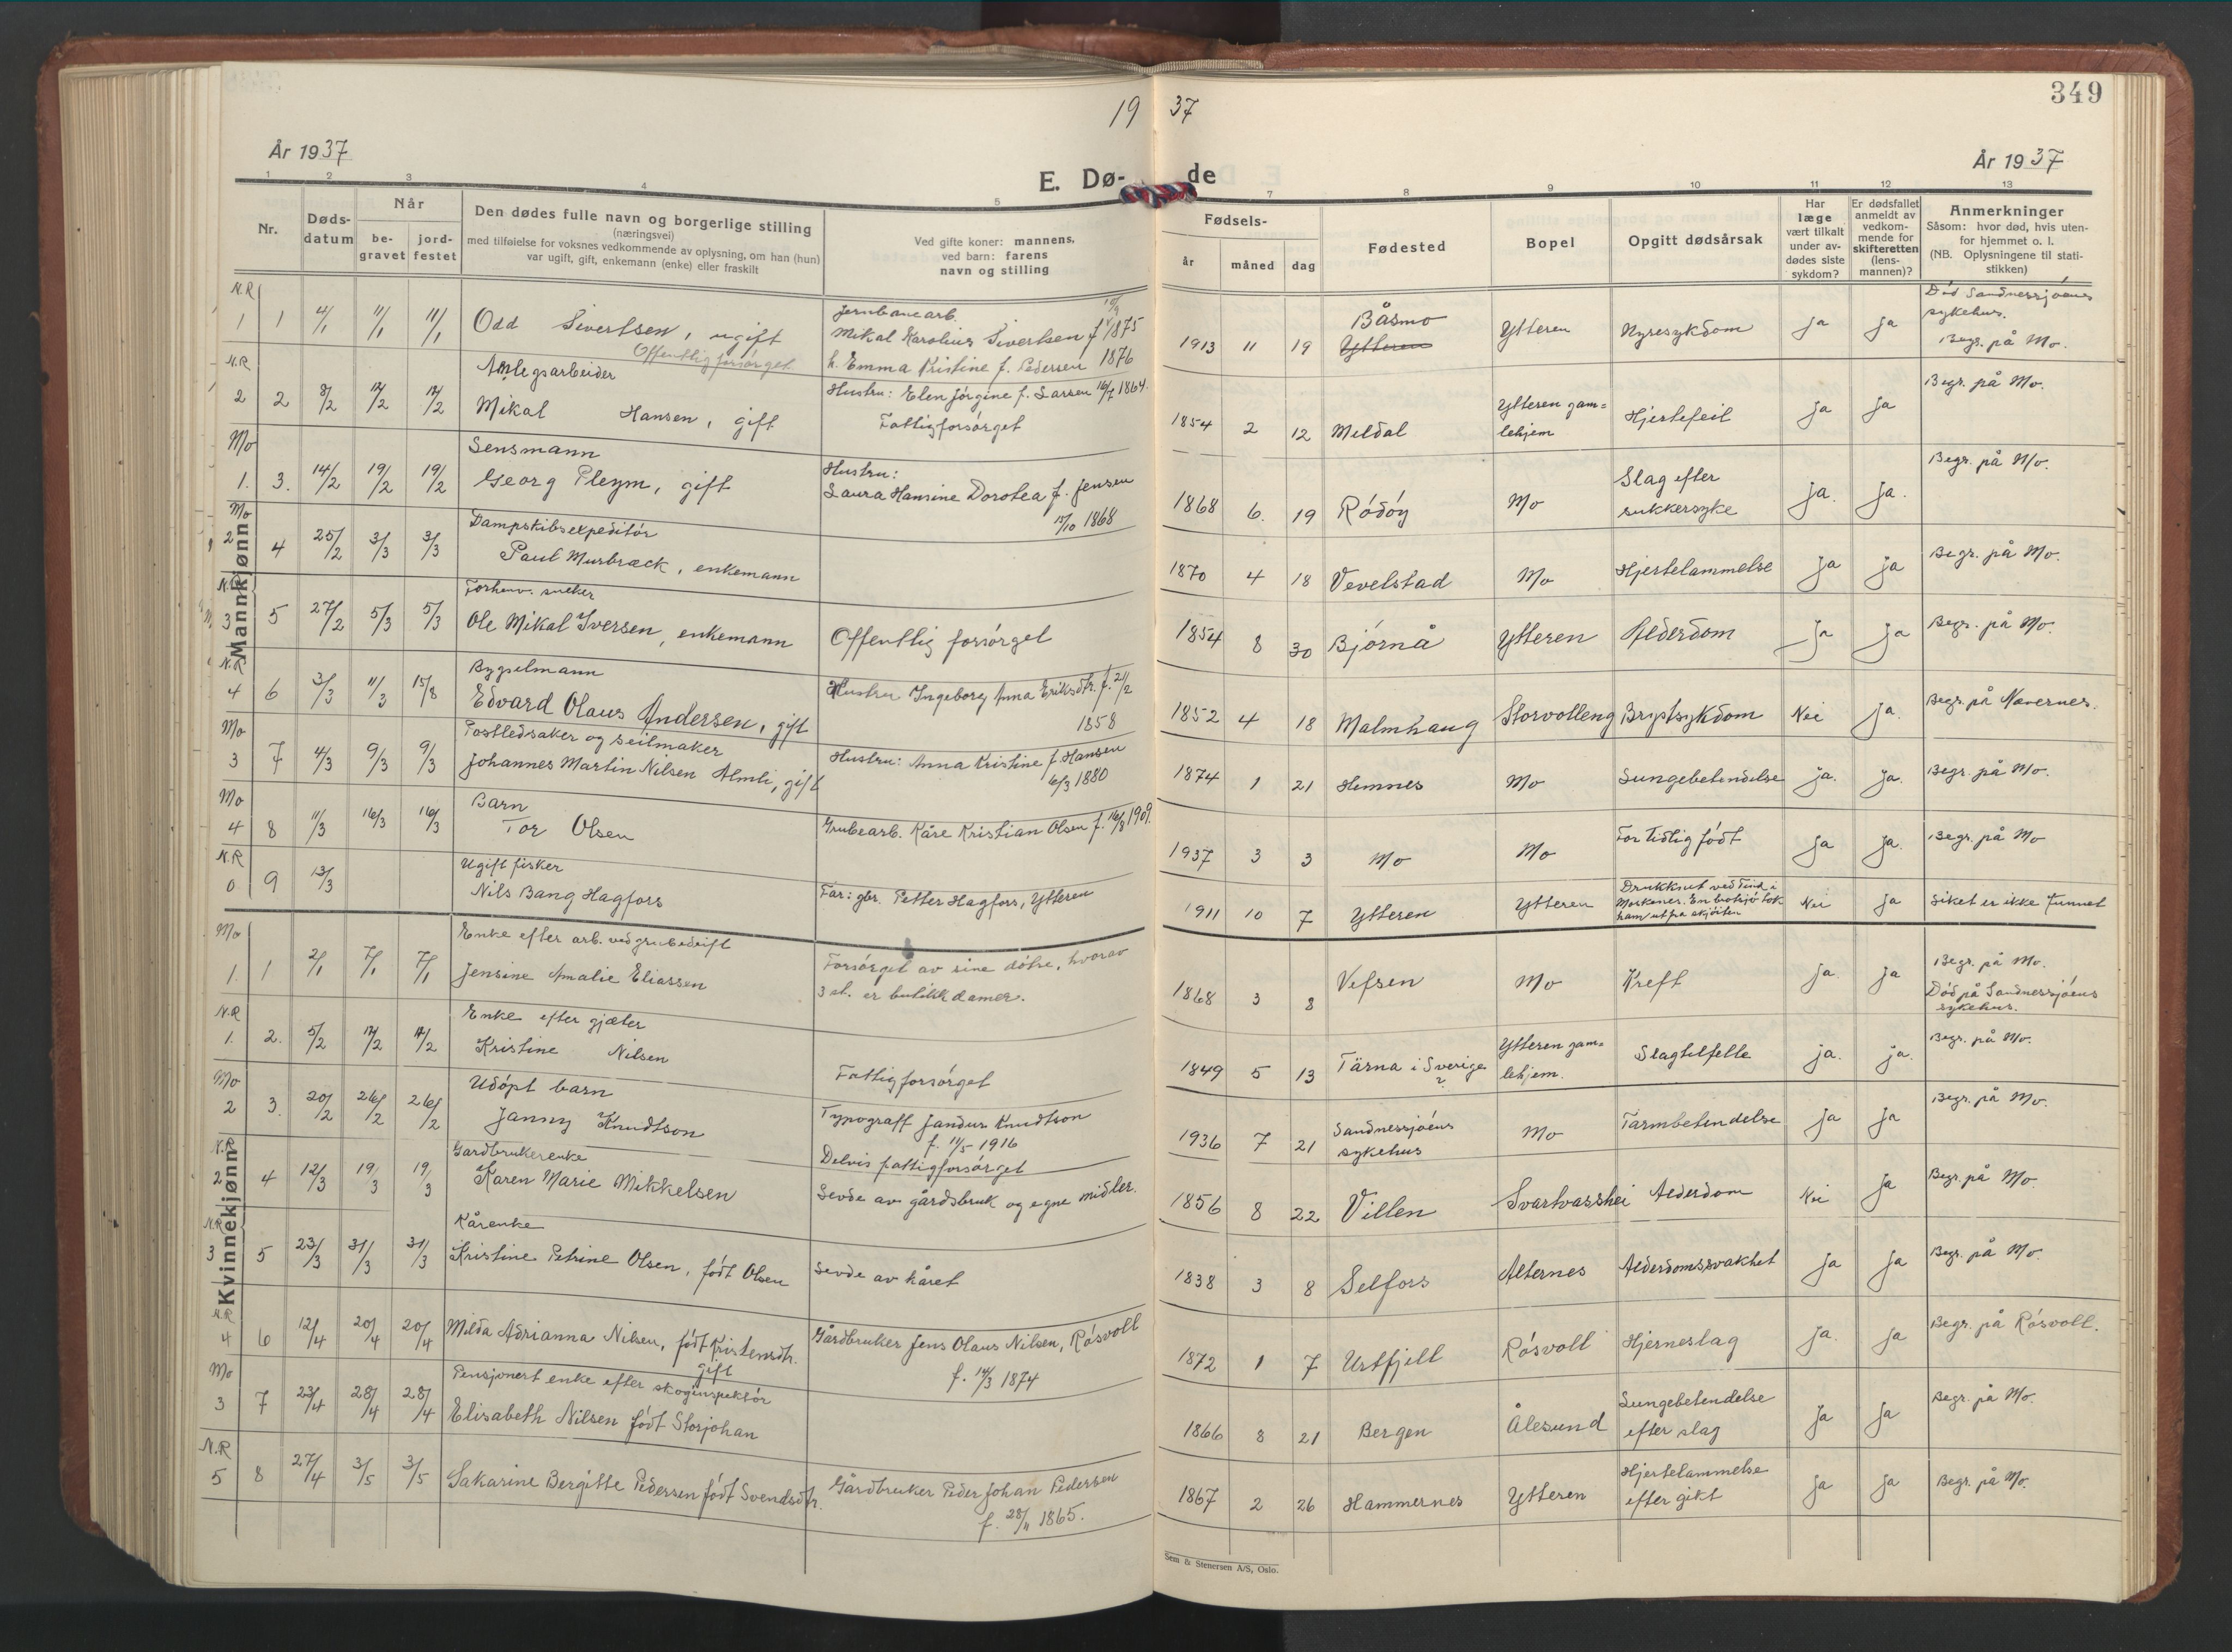 349
19 37
År 1937
År 1937
E. Dø- de
1 2 3 4 5 7 8 9 10 11 12 13
Nr.
Døds-
datum
Når
be-
gravet
jord-
festet
Den dødes fulle navn og borgerlige stilling
(næringsvei)
med tilføielse for voksnes vedkommende av oplysning, om han (hun)
var ugift, gift, enkemann (enke) eller fraskilt
Ved gifte koner: mannens,
ved barn: farens
navn og stilling
Fødsels-
år måned dag
Fødested
Bopel
Opgitt dødsårsak
Har
læge
vært tilkalt
under av-
dødes siste
sykdom?
Er dødsfallet
anmeldt av
vedkom-
mende for
skifteretten
(lens-
mannen)?
Anmerkninger
Såsom: hvor død, hvis uten-
for hjemmet o. l.
(NB. Oplysningene til stati-
stikken)
Mannkjønn
N.R
1 1 4/1 11/1 11/1 Odd Sivertsen, ugift
Offentlig forsørget
Jernbanearb.
Mikal Karolius Sivertsen f. 1875
h. Emma Kristine f. Pedersen 1876
1913 11 19 Båsmo
Ytteren
Ytteren Nyresykdom ja ja
Død Sandnessjøens
sykehus.
Begr. på Mo.
N.R
2 2 8/2 12/2 12/2 Anlegsarbeider
Mikal Hansen, gift
Hustru: Elen Jørgine f. Larsen 16/7 1864.
Fattigforsørget
1854 2 12 Meldal
Ytteren gam=
lehjem
Hjertefeil ja ja Begr. på Mo.
Mo
1. 3. 14/2 19/2 19/2 Lensmann
Georg Pleym, gift
Hustru:
Laura Hansine Dorotea f. Jensen
15/10 1868
1868 6. 19 Rødøy Mo
Slag efter
sukkersyke
ja. ja. Begr. på Mo.
Mo
2 4 25/2 3/3 3/3 Dampskibsexpeditør
Paul Musbræck, enkemann
1870 4 18 Vevelstad Mo Hjertelammelse ja ja Begr. på Mo.
N.R
3 5 27/2 5/3 5/3 Forhenv. snekker
Ole Mikal Iversen, enkemann
Offentlig forsørget
1854 8 30 Bjørnå Ytteren Alderdom ja ja Begr. på Mo.
N.R
4 6 3/3 11/3 15/8 Bygselmann
Edvard Olaus Andersen, gift
Hustru Ingeborg Anna Eriksdtr. f. 21/2
1858
1852 4 18 Malmhaug Storvolleng Brystsykdom Nei ja. Begr. på Nævernes.
Mo
3 7 4/3 9/3 9/3 Postledsaker og seilmaker
Johannes Martin Nilsen Almli, gift
Hustru: Anna Kristine f. Hansen
6/3 1880
1874 1 21 Hemnes Mo Lungebetendelse ja. ja. Begr. på Mo.
Mo
4 8 11/3 16/3 16/3 Barn
Tor Olsen
Grubearb. Kåre Kristian Olsen f. 16/8 1909.
1937 3 3 Mo Mo For tidlig født ja ja. Begr. på Mo
N.R
0 9 13/3 Ugift fisker
Nils Bang Hagfors
Far: gbr. Petter Hagfors, Ytteren
1911 10 7 Ytteren Ytteren
Drukknet ved Tind i
Moskenes. En brottsjø tok
ham ut fra skjøiten
Nei ja Liket er ikke funnet
Kvinnekjønn
Mo
1. 1 2/1 7/1 7/1 Enke efter arb. ved grubedrift
Jensine Amalie Eliassen
Forsørget av sine døtre, hvorav
3 st. er butikkdamer.
1868 3 8 Vefsen Mo Kreft ja ja
Begr. på Mo.
Død på Sandnessjøens
sykehus.
N.R
1. 2. 5/2 12/2 12/2 Enke efter gjæter
Kristine Nilsen
Fattigforsørget
1849 5 13 Tärna i Sverige
?
Ytteren gam=
lehjem.
Slagtilfelle ja. ja. Begr. på Mo.
Mo
2 3. 20/2 26/2 26/2 Udøpt barn
Janny Knudtson
Typograff Jandus Knudtson
f. 11/5 1916
1936 7 21 Sandnessjøens
sykehus
Mo Tarmbetendelse ja ja Begr. på Mo.
N.R
2 4 12/3 19/3 19/3 Gårdbrukerenke
Karen Marie Mikkelsen
Delvis fattigforsørget
Levde av gårdsbruk og egne midler.
1856 8 22 Villen Svartvasshei Alderdom Nei ja Begr. på Mo
N.R
3 5 23/3 31/3 31/3 Kårenke
Kristine Petrine Olsen, født Olsen
Levde av kåret
1838 3 8 Selfors Alternes Alderdomssvakhet ja ja Begr. på Mo.
N.R
4 6 12/4 20/4 20/4 Milda Adrianna Nilsen, født Kristensdtr.
gift
Gårdbruker Jens Olaus Nilsen, Røsvoll
f. 14/3 1874
1872 1 7 Urtfjell Røsvoll Hjerneslag ja. ja Begr. på Røsvoll.
Mo
3 7 23/4 28/4 28/4 Pensjonert enke efter skoginspektør
Elisabeth Nilsen født Storjohan
1866 8 21 Bergen Ålesund
Lungebetendelse
efter slag
ja ja Begr. på Mo.
N.R
5 8 27/4 3/5 3/5 Sakarine Bergitte Pedersen født Svendsdtr.
Gårdbruker Peder Johan Pedersen
f. 28/11 1865.
1867 2 26 Hammernes Ytteren
Hjertelammelse
efter gikt
ja ja Begr. på Mo.
Sem & Stenersen A/S, Oslo.